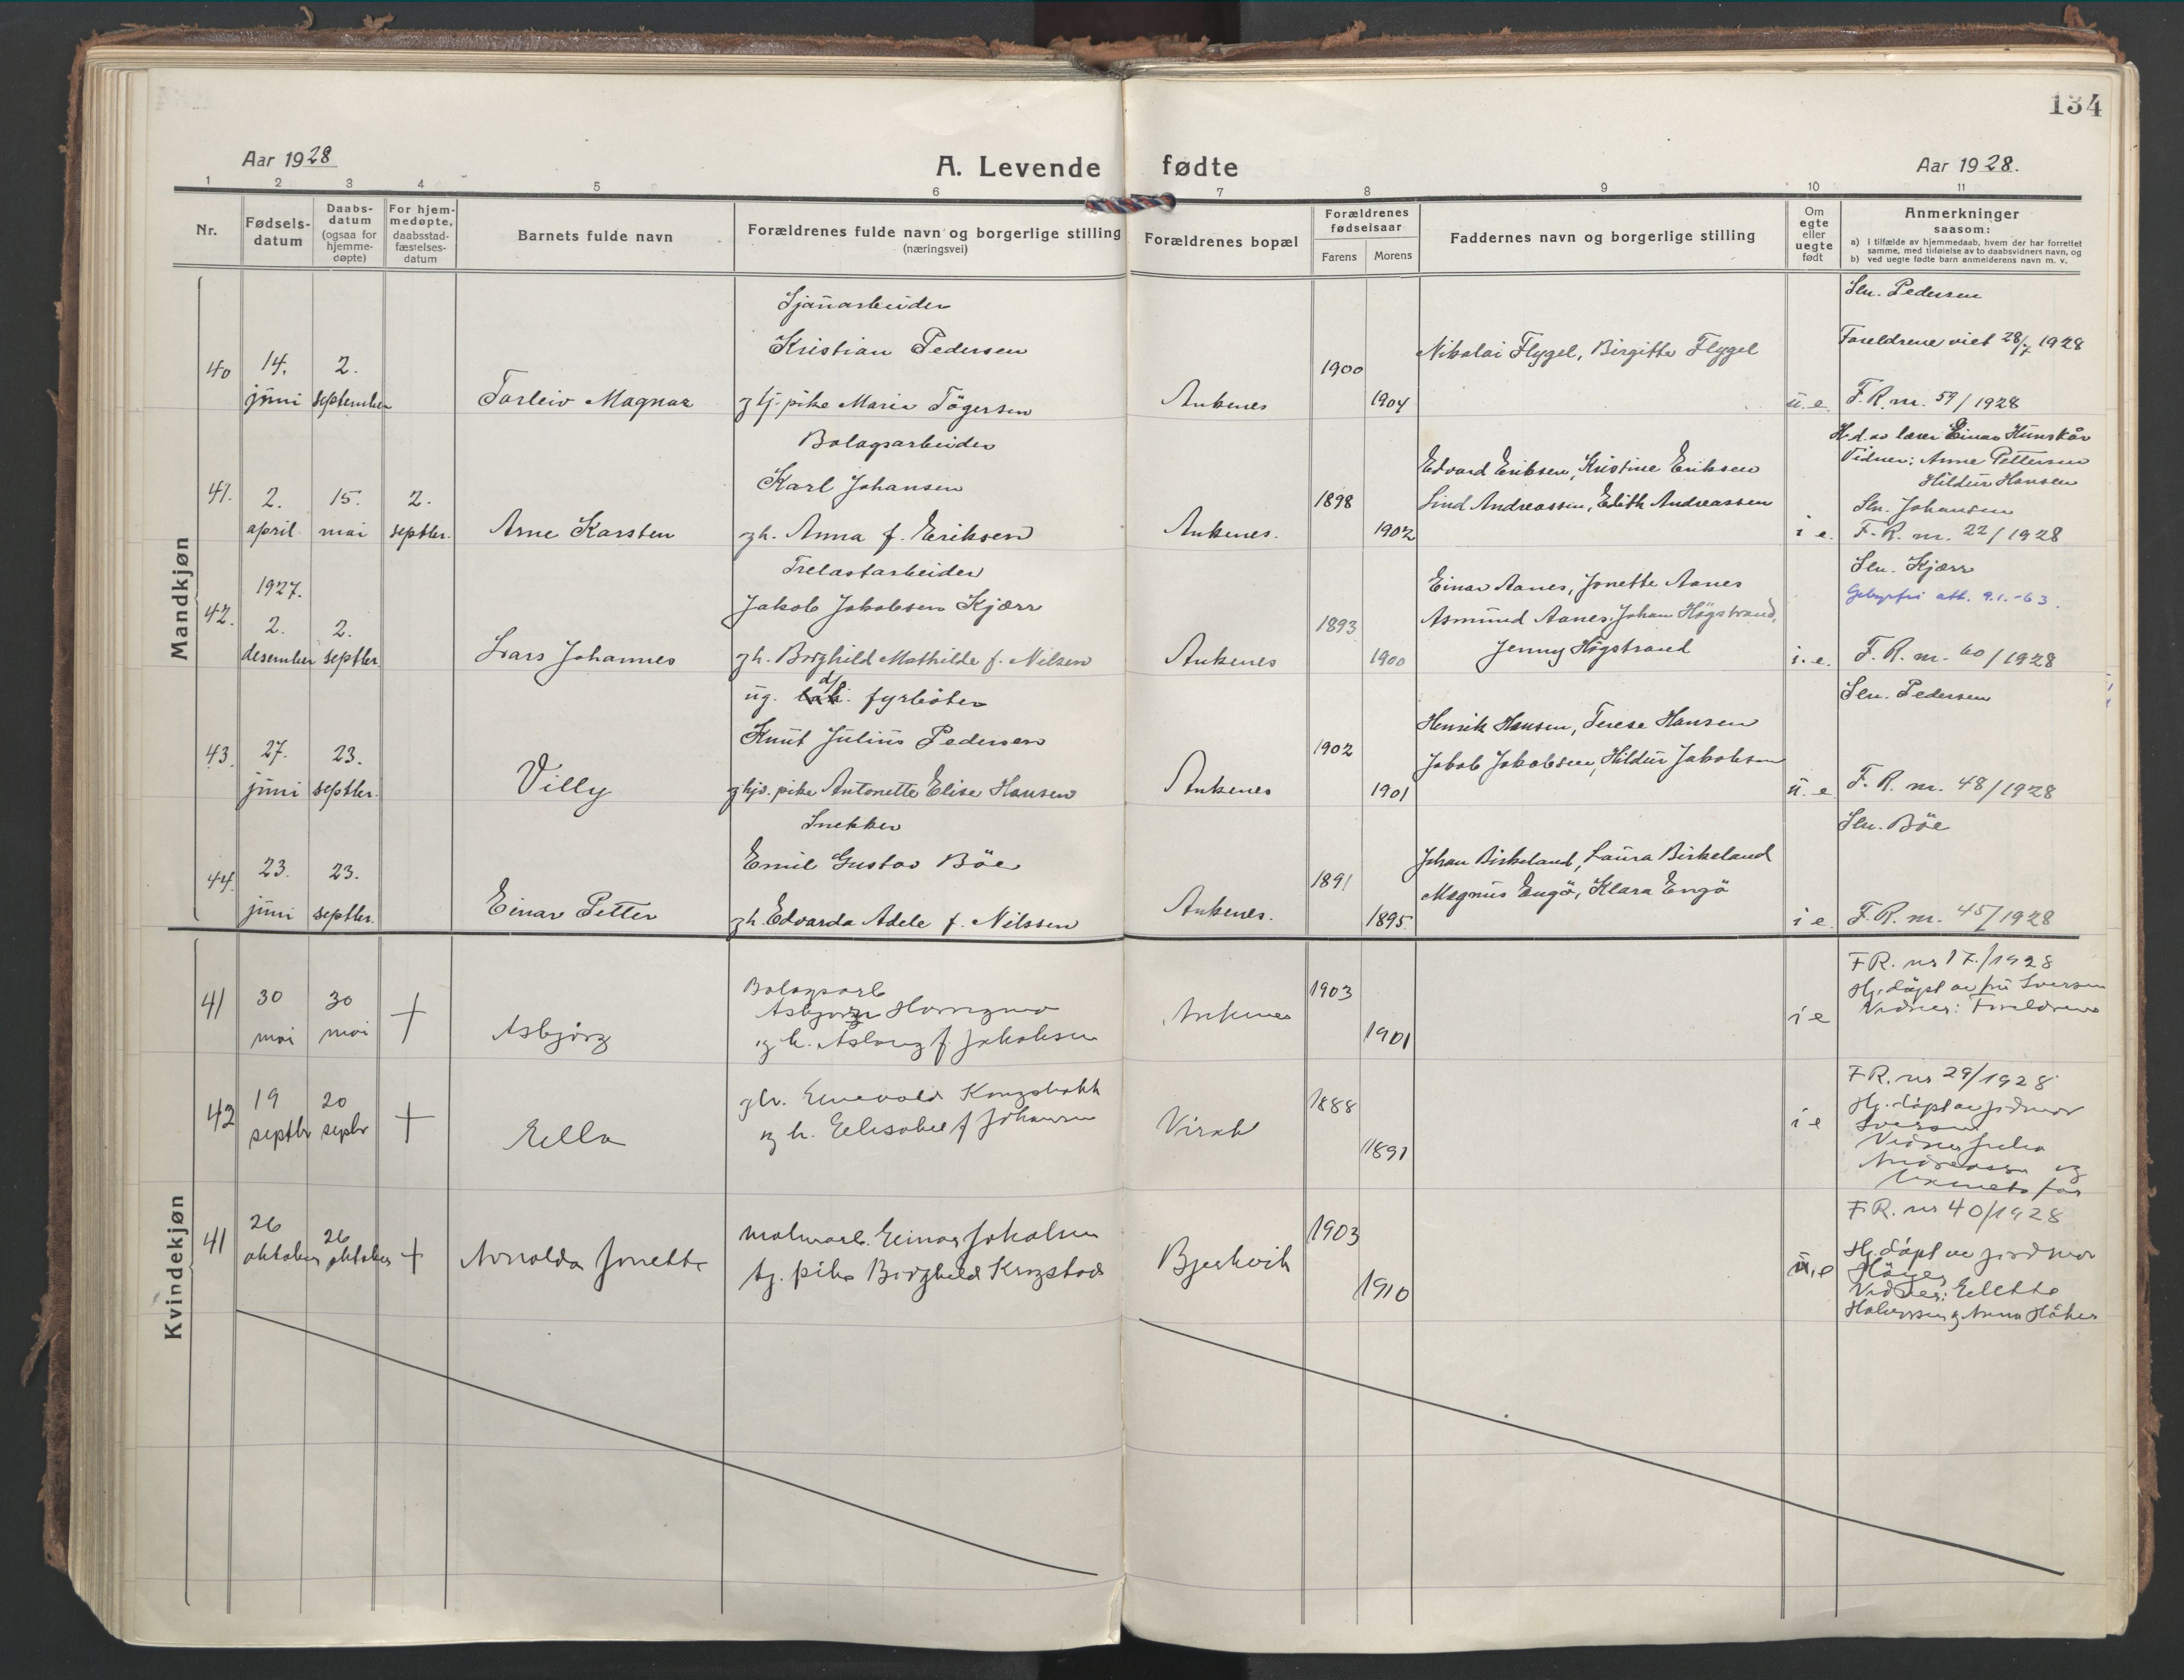 134
Aar 1928
A. Levende fødte
Aar 1928.
1 2 3 4 5 6 7 8 9 10 11
Nr.
Fødselsdatum
Daabsdatum (ogsaa for hjemmedøpte)
For hjemmedøpte, daabsstadfæstelsesdatum
Barnets fulde navn
Forældrenes fulde navn og borgerlige stilling (næringsvei)
Forældrenes bopæl
Forældrenes fødselsaar
Farens Morens
Faddernes navn og borgerlige stilling
Om egte eller uegte født
Anmerkninger saasom:
a) I tilfælde av hjemmedaab, hvem der har forrettet samme, med tilføielse av to daabsvidners navn, og
b) ved uegte fødte barn anmelderens navn m. v.
Mandkjøn
40
14. juni
2. september
Torleiv Magnar
Sjauarbeider
Kristian Pedersen
g tj. pike Marie Tögersen
Ankenes
1900
1904
Nikolai Flygel, Birgitte Flygel
u. e.
Sln. Pedersen
Foreldrene viet 28/7 1928
F. R. nr. 59/1928
41.
2. april
15. mai
2. septbr.
Arne Karsten
Bolagsarbeider
Karl Johansen
g h. Anna f. Eriksen
Ankenes.
1898
1902
Edvard Eriksen, Kristine Eriksen
Lind Andreassen, Edith Andreassen
i e.
H. d. av lærer Einar Hunskår
Vidner: Anne Pettersen
Hildur Hansen
Sln. Johansen
F. R. nr. 22/1928
42.
1927.
2. desember
2. septbr.
Lars Johannes
Trelastarbeider
Jakob Jakobsen Kjærr
g h. Borghild Mathilde f. Nilsen
Ankenes
1893
1900
Einar Aanes, Jonette Aanes
Asmund Aanes, Johan Högstrand,
Jenny Högstrand
i. e.
Sln. Kjærr
Gebyrfri att. 9.1.-63.
F. R. nr. 60/1928
43.
27. juni
23. septbr.
Villy
ug. d/s fyrböter
Knut Julius Pedersen
g hjv. pike Antonette Elise Hansen
Ankenes
1902
1901
Henrik Hansen, Terese Hansen
Jakob Jakobsen, Hildur Jakobsen
u. e
Sln. Pedersen
F. R. nr. 48/1928
44.
23. juni
23. septbr.
Einar Petter
Snekker
Emil Gustav Böe
g h. Edvarda Adele f. Nilssen
Ankenes.
1891
1895.
Johan Birkeland, Laura Birkeland
Magnus Engö, Klara Engö
i e.
Sln. Böe
F. R. nr. 45/1928
Kvindekjøn
41
30 mai
30 mai
+
Asbjörg
Bolagsarb
g h. Aslaug f Jakobsen
Ankenes
1903
1901
i e
F R. nr 17./1928
Hj. döpt av fru Iversen
Vidner: Foreldrene
42
19 septbr
20 sepbr
+
Ella
g h. Elisabet f Johansen
Virak
1888
1891
i e
F R. nr 29/1928
Hj. döpt av jordmor
Iversen
Vidner Julia
Andreassen og
barnets far
41
26 oktober
26 oktober
+
Arnolda Jonette
malmarb. Einar Jakobsen
tj. pike Borghild Krogstad
Bjerkvik
1903
1910
u. e
F. R. nr 40/1928
Hj. döpt av jordmor
Vidner: Elette
Halvorsen g Anna